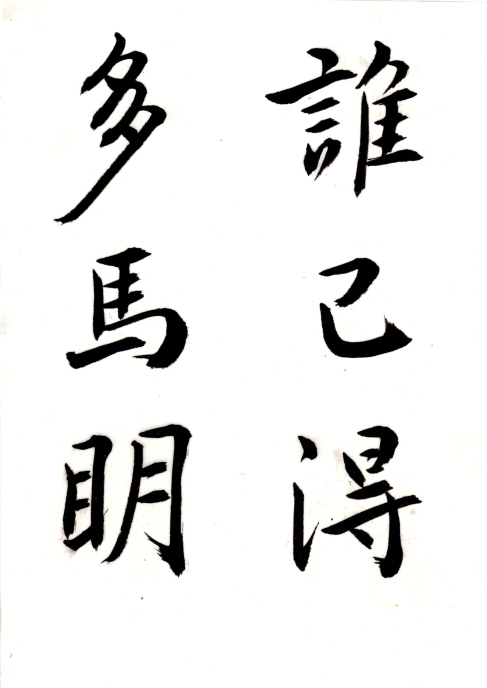 誰己得
多馬明